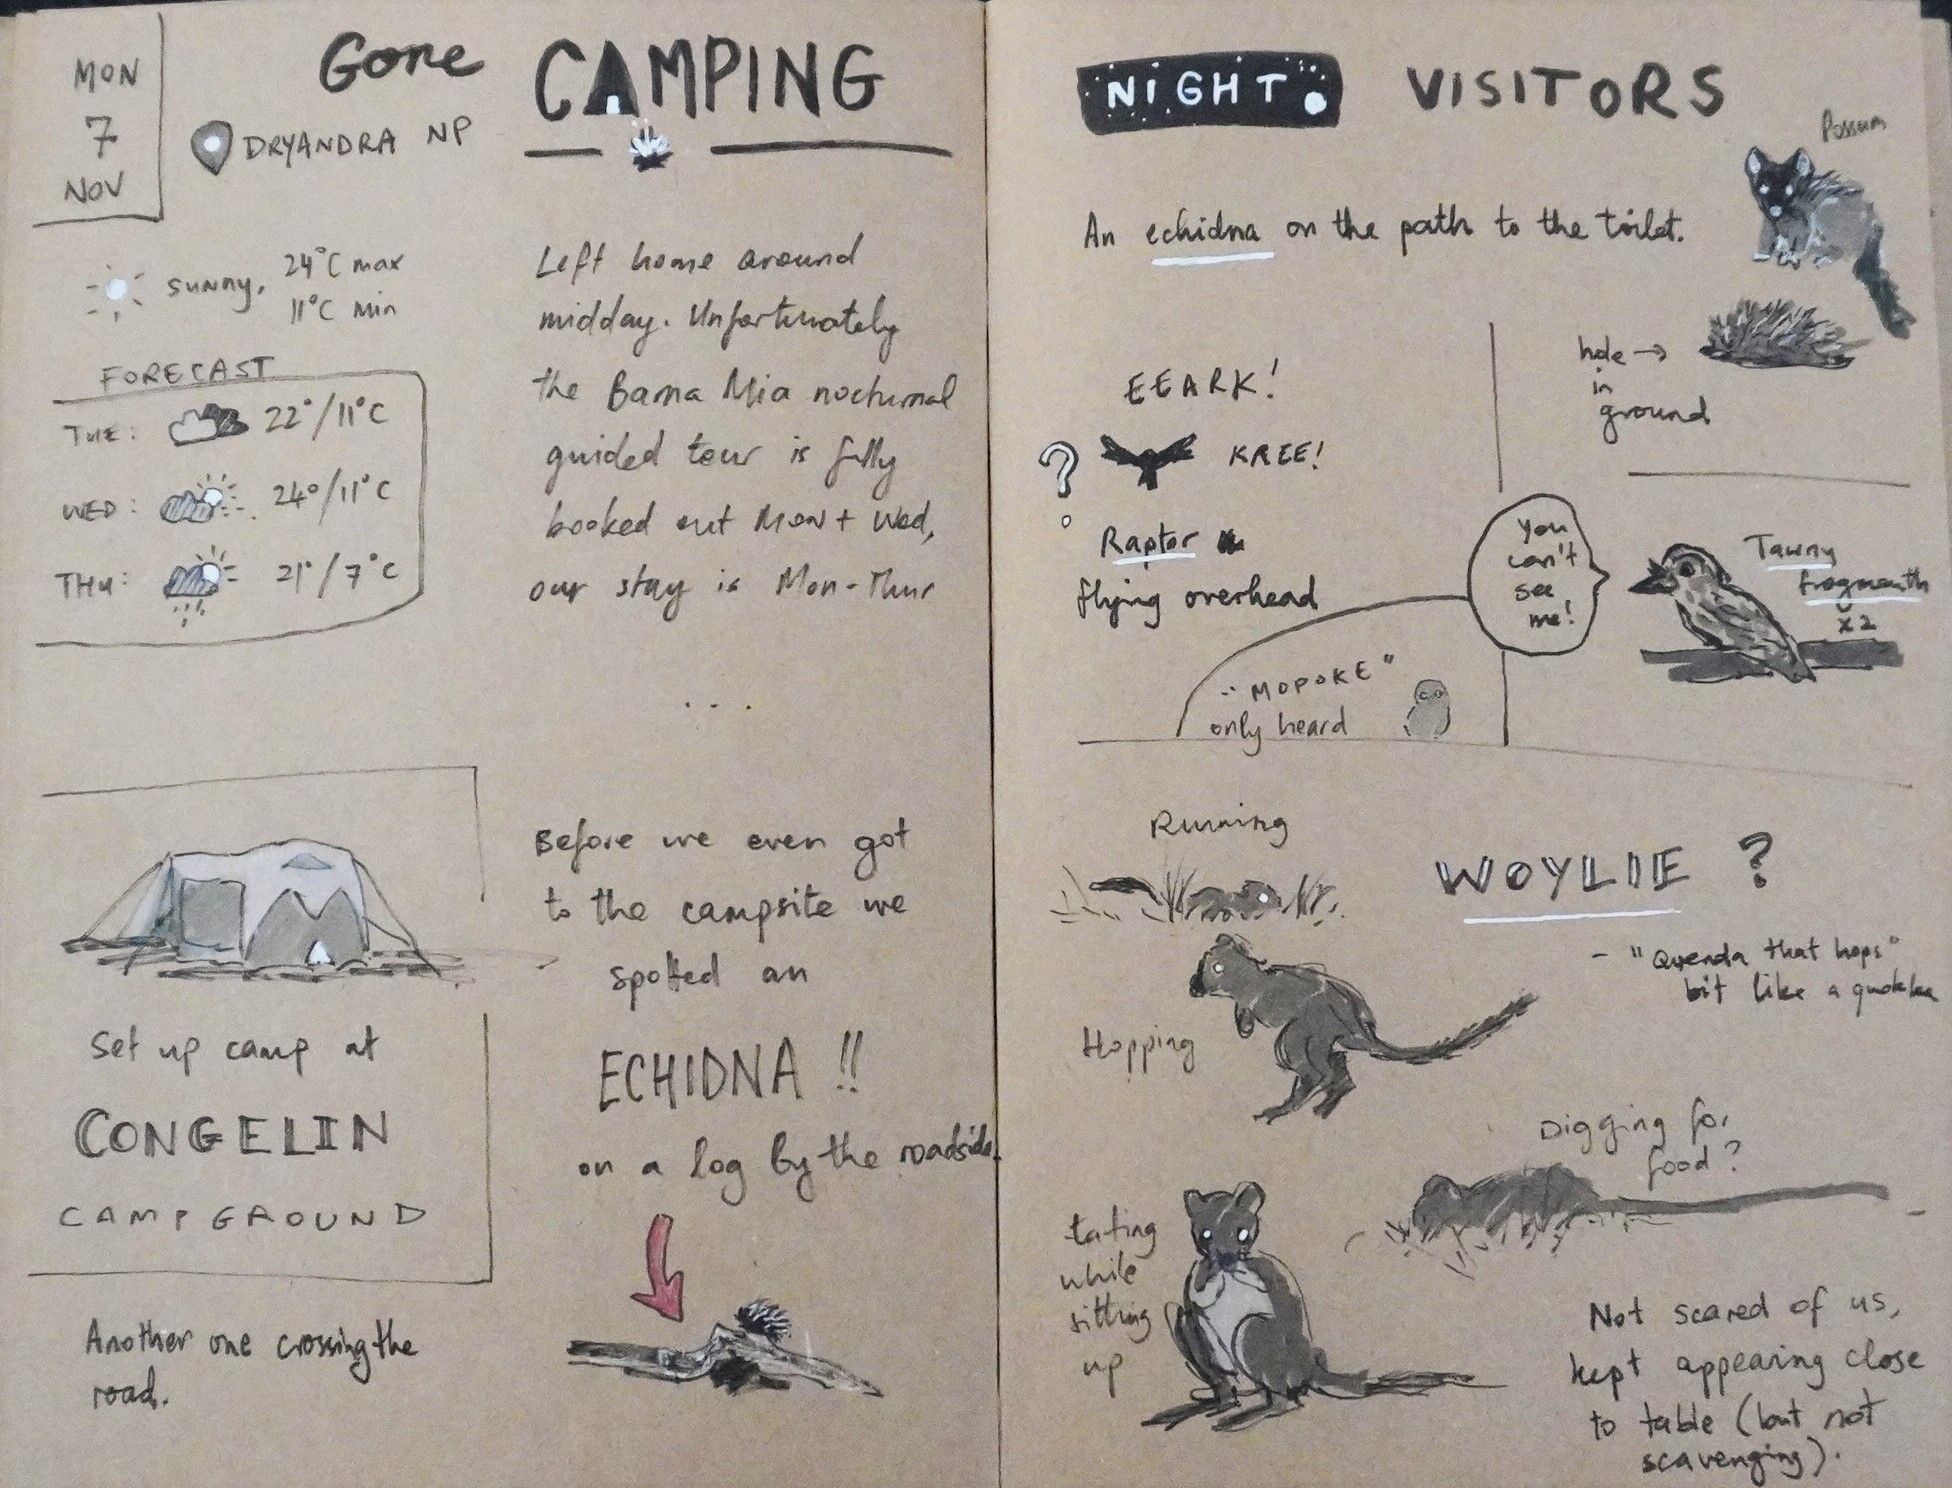 MON
7
NOV
Gone CAMPING
DRYANDRA NP
sunny, 24°C max
11°C min
FORECAST
TUE: 22°/11°C
WED: 24°/11°C
THU: 21°/7°C
Left home around
midday. Unfortunately
the Barna Mia nocturnal
guided tour is fully
booked out Mon + Wed,
our stay is Mon-Thur
...
Set up camp at
CONGELIN
CAMPGROUND
Another one crossing the
road.
Before we even got
to the campsite we
spotted an
ECHIDNA !!
on a log by the roadside.
NIGHT VISITORS
Possum
An echidna on the path to the toilet.
hole →
in
ground
EEARK!
? KREE!
Raptor
flying overhead
"MOPOKE"
only heard
You
can't
see
me!
Tawny
frogmouth
x2
Running
WOYLIE ?
- "Quenda that hops"
bit like a quokka
Hopping
Digging for
food?
Eating
while
sitting
up
Not scared of us,
kept appearing close
to table (but not
scavenging).